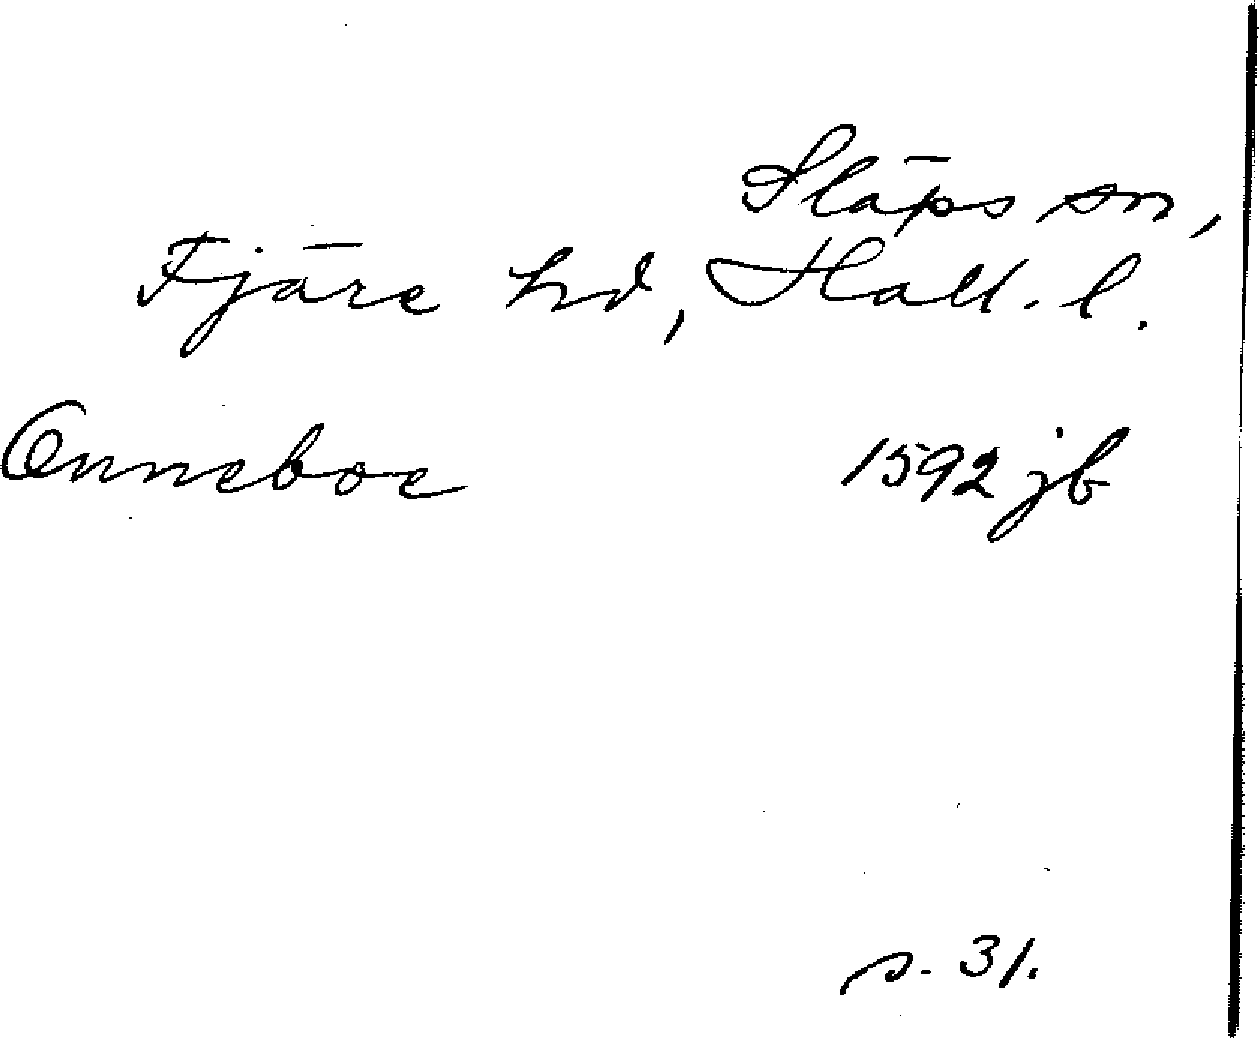 Släps sn,
Fjäre hd, Hall. l.
Onneboe 1592 jb
s. 31.